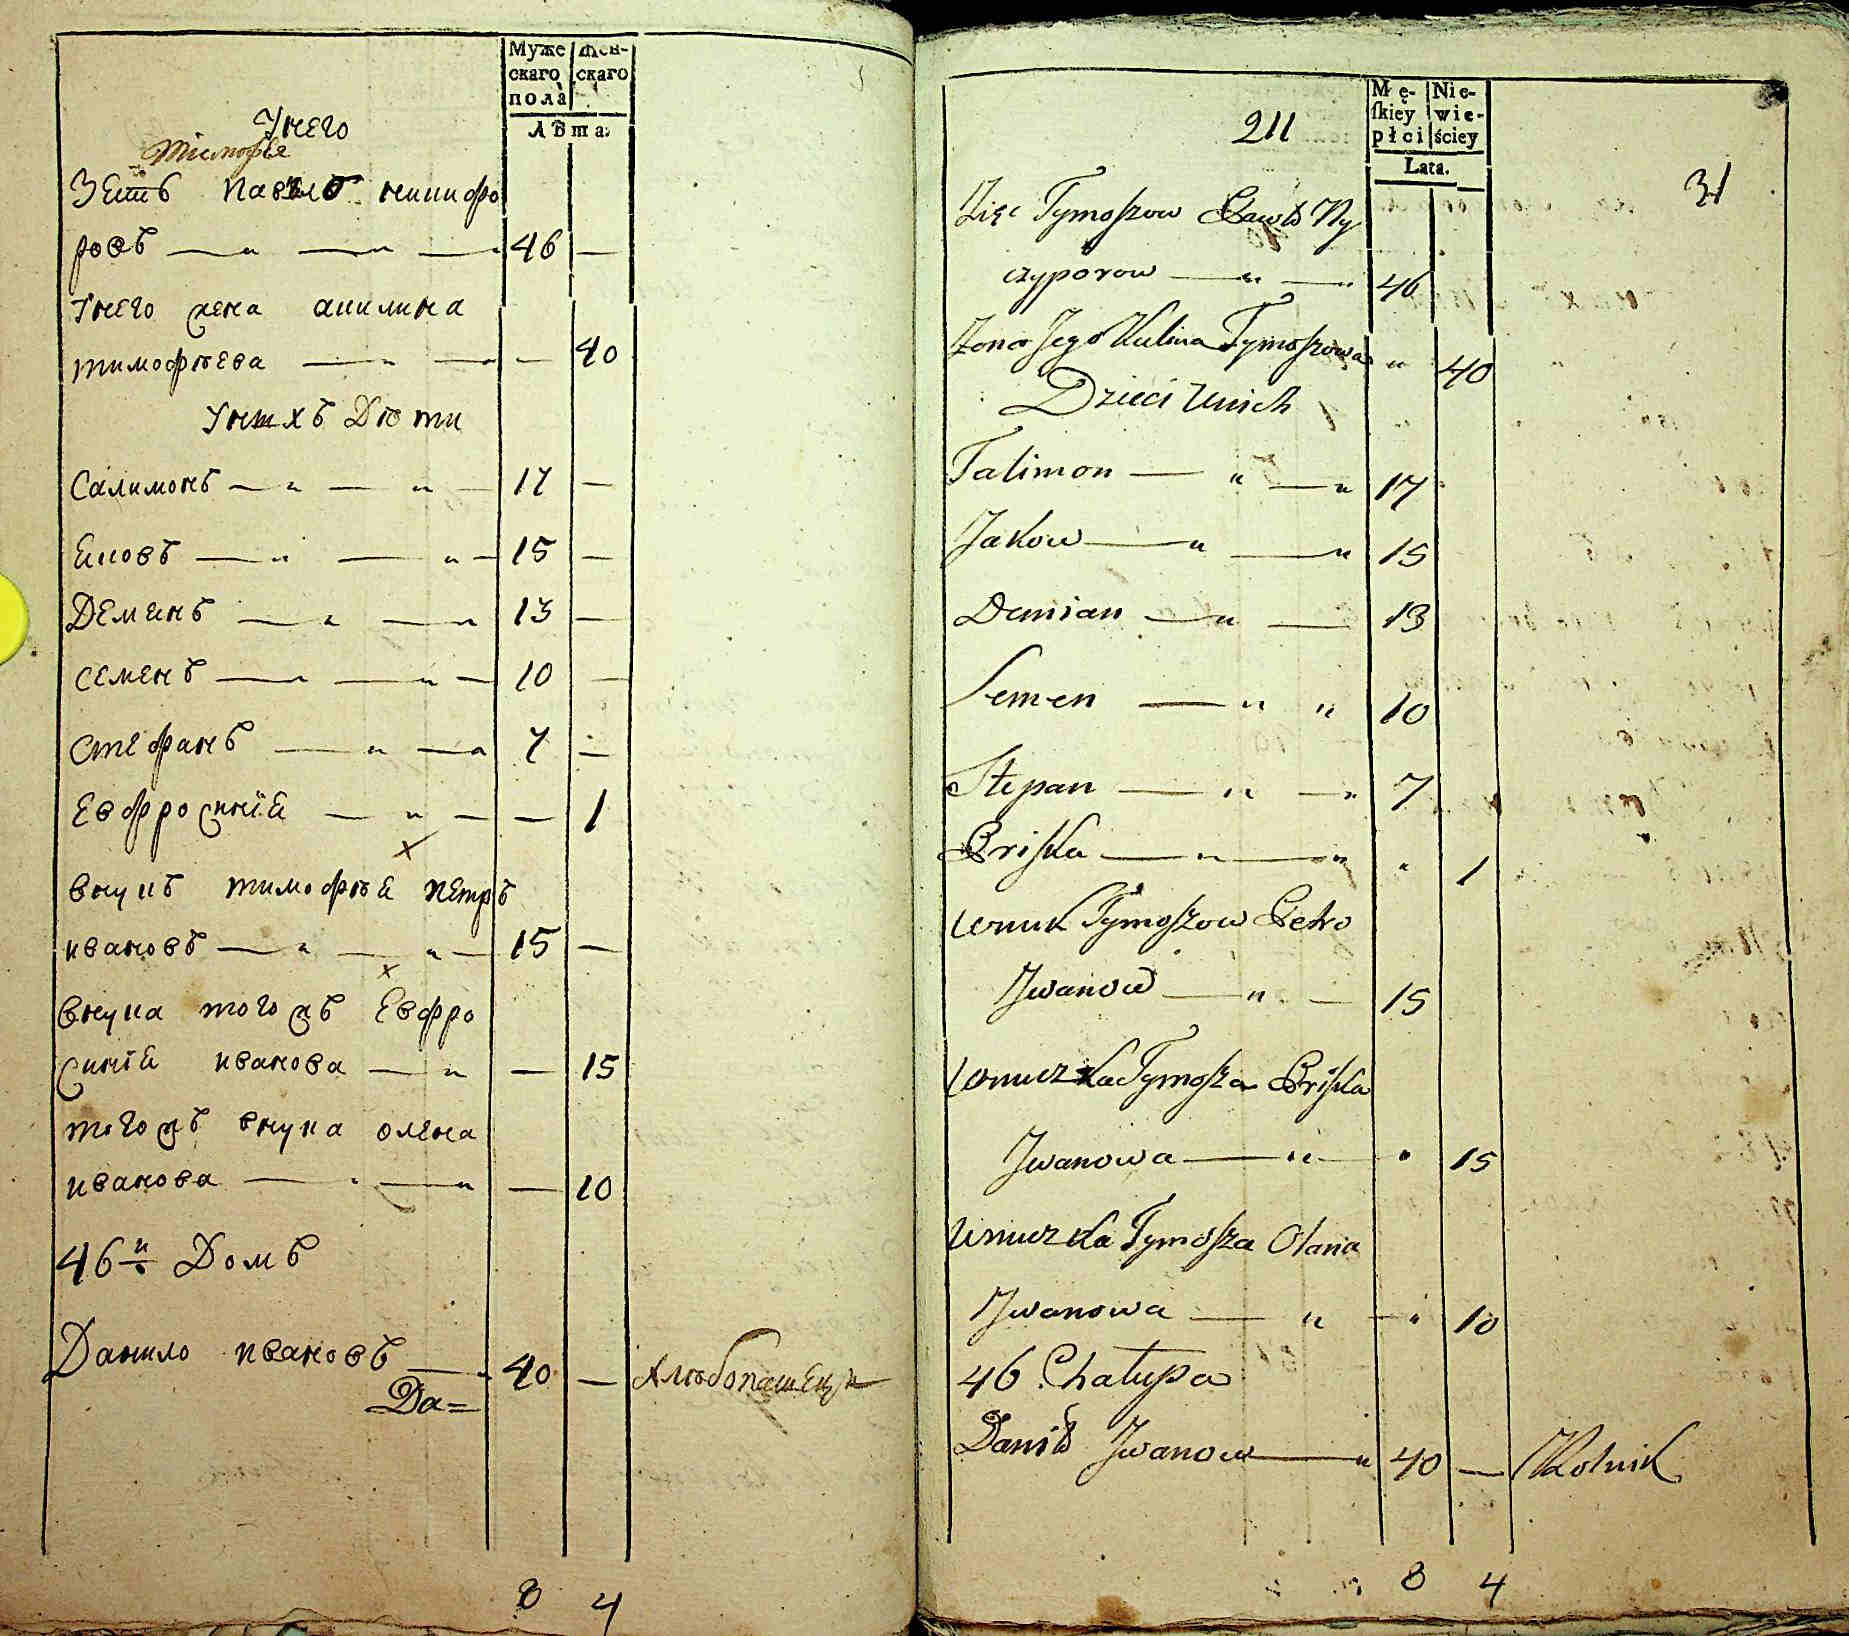 Муже
скаго
пола
Жен-
скаго
Лѣта.
Унего
Тимофѣя
Зеть Павло Ничифо
ровъ — „ — „ — 46 —
Унего жена Акилина
тимофѣева — „ — — 40
Унихъ Дѣти
Салимонъ — „ — „ — 17 —
Яковъ — „ — „ — 15 —
Демянъ — „ — „ 13 —
Семенъ — „ — „ — 10 —
Стефанъ — „ — „ 7 —
Евфросинія — „ — — 1
внукъ тимофѣя петръ
ивановъ — „ — „ — 15 —
внука тогожъ Евфро
синія иванова — „ — 15
тогожъ внука олена
иванова — „ — „ — 10
46й Домъ
Данило ивановъ — 40 — Хлѣбопашецъ
Да=
8 4
211
Mę-
skiey
płci
Nie-
wie-
ściey
Lata.
31
Zięc Tymoszow Pawło Ny
czyporow — „ — „ 46
Zona Jego Kulina Tymoszowa „ 40
Dzieci Unich
Talimon — „ — „ 17
Jakow — „ — „ 15
Demian — „ — 13
Semen — „ „ 10
Stepan — „ — „ 7
Priska — „ — „ „ 1
Wnuk Tymoszow Petro
Jwanow — „ — 15
Wnuczka Tymosza Priska
Jwanowa — „ — „ 15
Wnuczka Tymosza Olana
Jwanowa — „ — „ 10
46 Chałupa
Daniło Jwanow — „ 40 — Rolnik
8 4